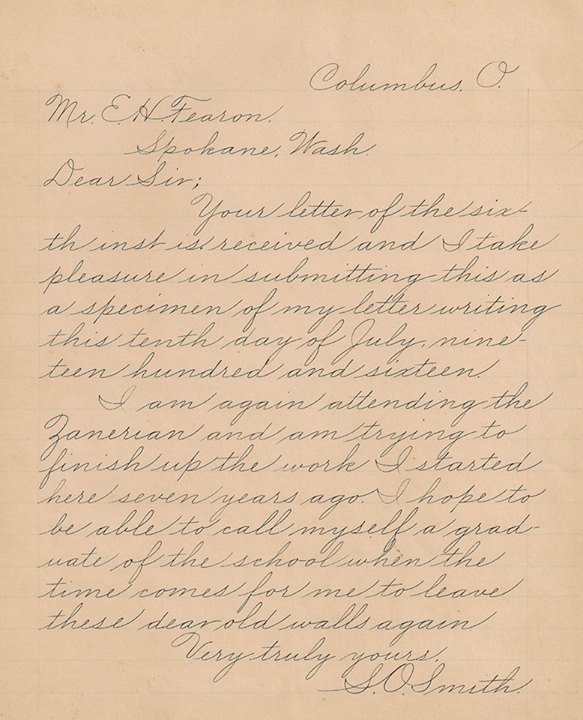 Columbus, O.
Mr. E. H. Fearon,
Spokane, Wash.
Dear Sir;
Your letter of the six-
th inst is received and I take
pleasure in submitting this as
a specimen of my letter writing
this tenth day of July, nine-
teen hundred and sixteen.
I am again attending the
Zanerian and am trying to
finish up the work I started
here seven years ago. I hope to
be able to call myself a grad-
uate of the school when the
time comes for me to leave
these dear old walls again
Very truly yours,
S. O. Smith.